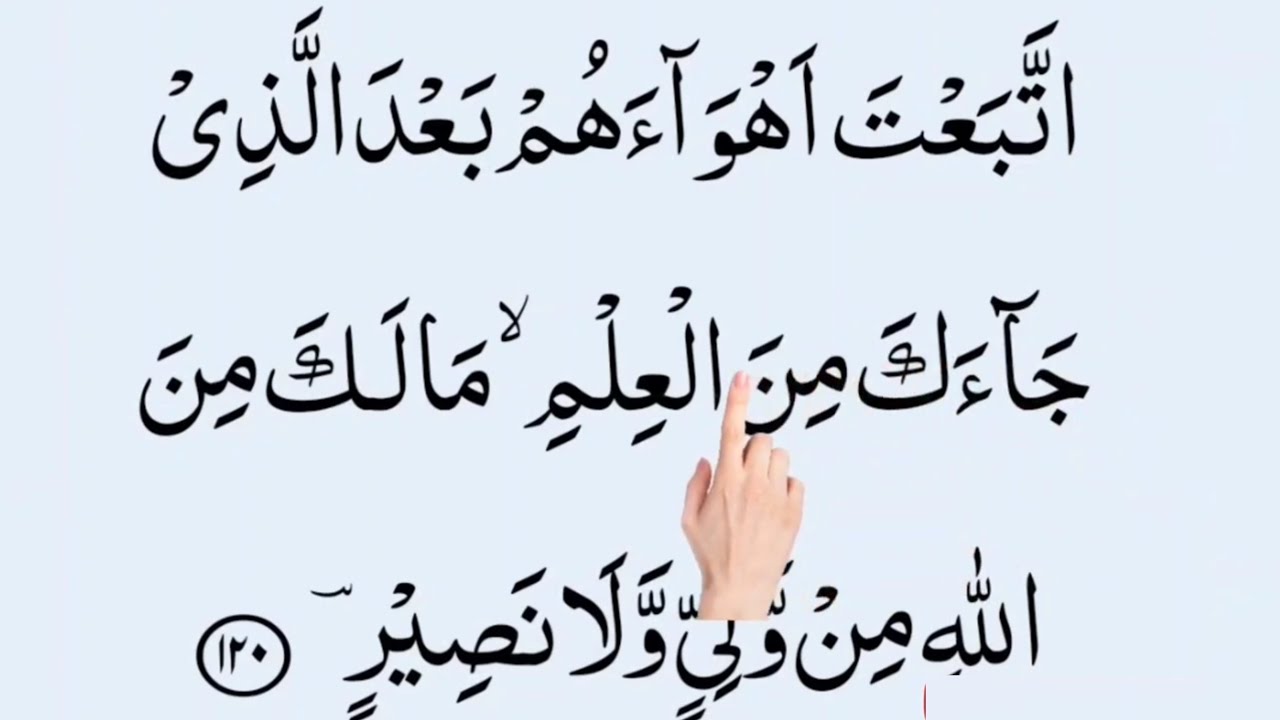 اتَّبَعْتَ اَهْوَآءَهُمْ بَعْدَ الَّذِیْ
جَآءَكَ مِنَ الْعِلْمِ ۙ مَا لَـكَ مِنَ
اللّٰهِ مِنْ وَّلِیٍّ وَّلَا نَصِیْرٍ ؔ ﴿۱۲۰﴾